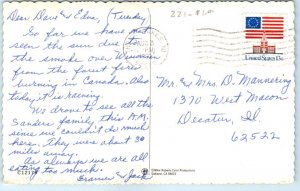 Dear Dave & Edna, (Tuesday)
So far we have not
seen the sun due to
the smoke over Wisconsin
from the forest fires
burning in Canada. Also
today, it is raining.
We drove to see all the
Sanders family this A.M.
since we couldn't do much
here. They were about 30
miles away.
As always we are all
eating too much.
Frances & Jack
C12170
221-$1.00
United States 13c
Mr. and Mrs. D. Mannering
1370 West Macon
Decatur, Il.
62522